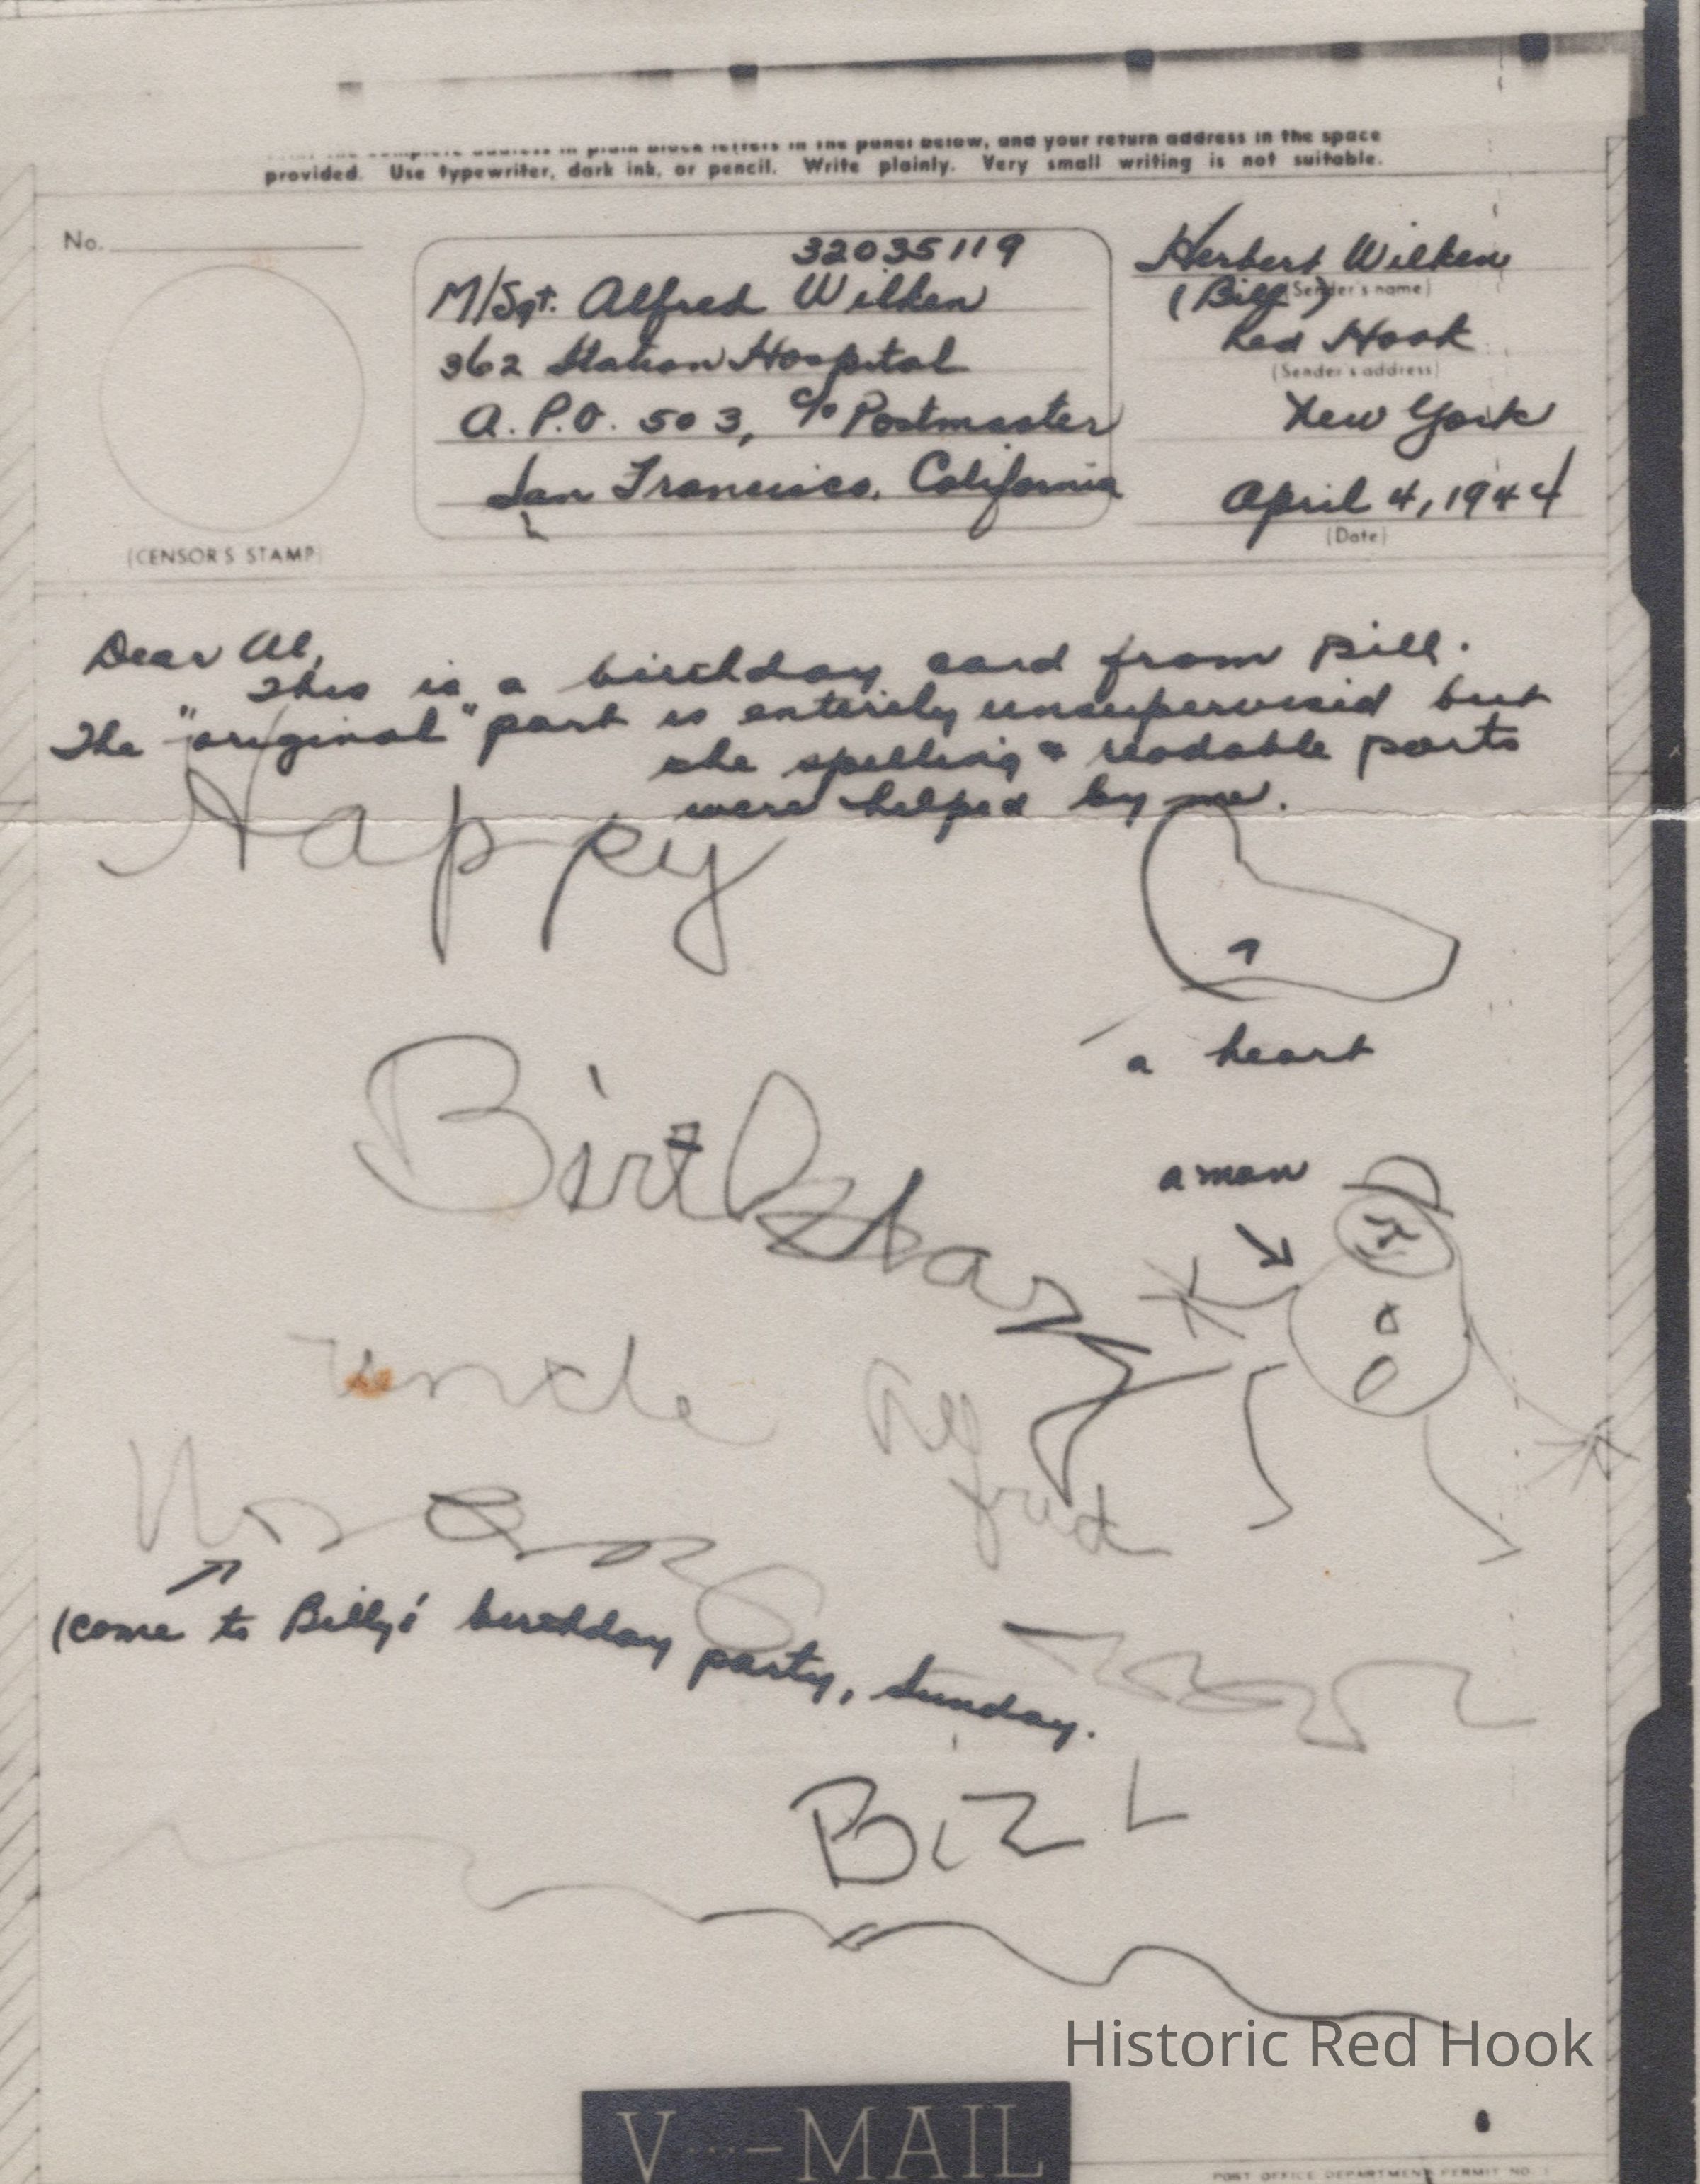 complete address in plain block letters in the panel below, and your return address in the space
provided. Use typewriter, dark ink, or pencil. Write plainly. Very small writing is not suitable.
No.
(CENSOR'S STAMP)
32035119
M/Sgt. Alfred Wilken
362 Station Hospital
A.P.O. 503, c/o Postmaster
San Francisco, California
Herbert Wilken
(Sender's name)
(Bill)
Red Hook
(Sender's address)
New York
April 4, 1944
(Date)
Dear Al,
This is a birthday card from Bill.
The "original" part is entirely unsupervised but
the spelling & readable parts
were helped by me.
Happy
a heart
Birthday
a man
uncle Al
fred
(come to Billy's birthday party, Sunday.
Bill
Historic Red Hook
V···—MAIL
POST OFFICE DEPARTMENT PERMIT NO.